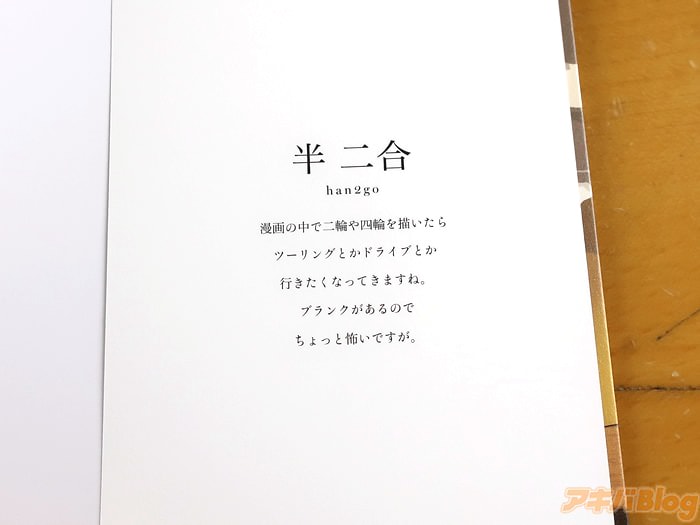 半 二合
han2go
漫画の中で二輪や四輪を描いたら
ツーリングとかドライブとか
行きたくなってきますね。
ブランクがあるので
ちょっと怖いですが。
アキバBlog